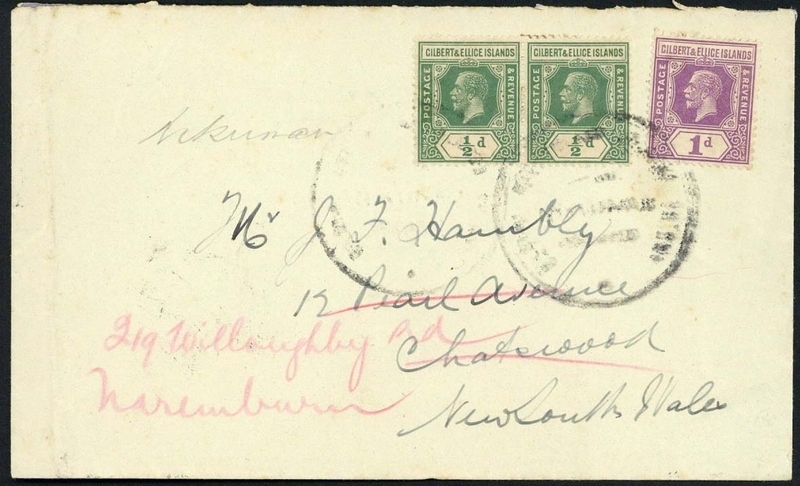 GILBERT & ELLICE ISLANDS
POSTAGE & REVENUE
½ d
GILBERT & ELLICE ISLANDS
POSTAGE & REVENUE
½ d
GILBERT & ELLICE ISLANDS
POSTAGE & REVENUE
1 d
Mr J. F. Hambly
12 Pearl Avenue
219 Willoughby Rd
Chatswood
Naremburn
New South Wales